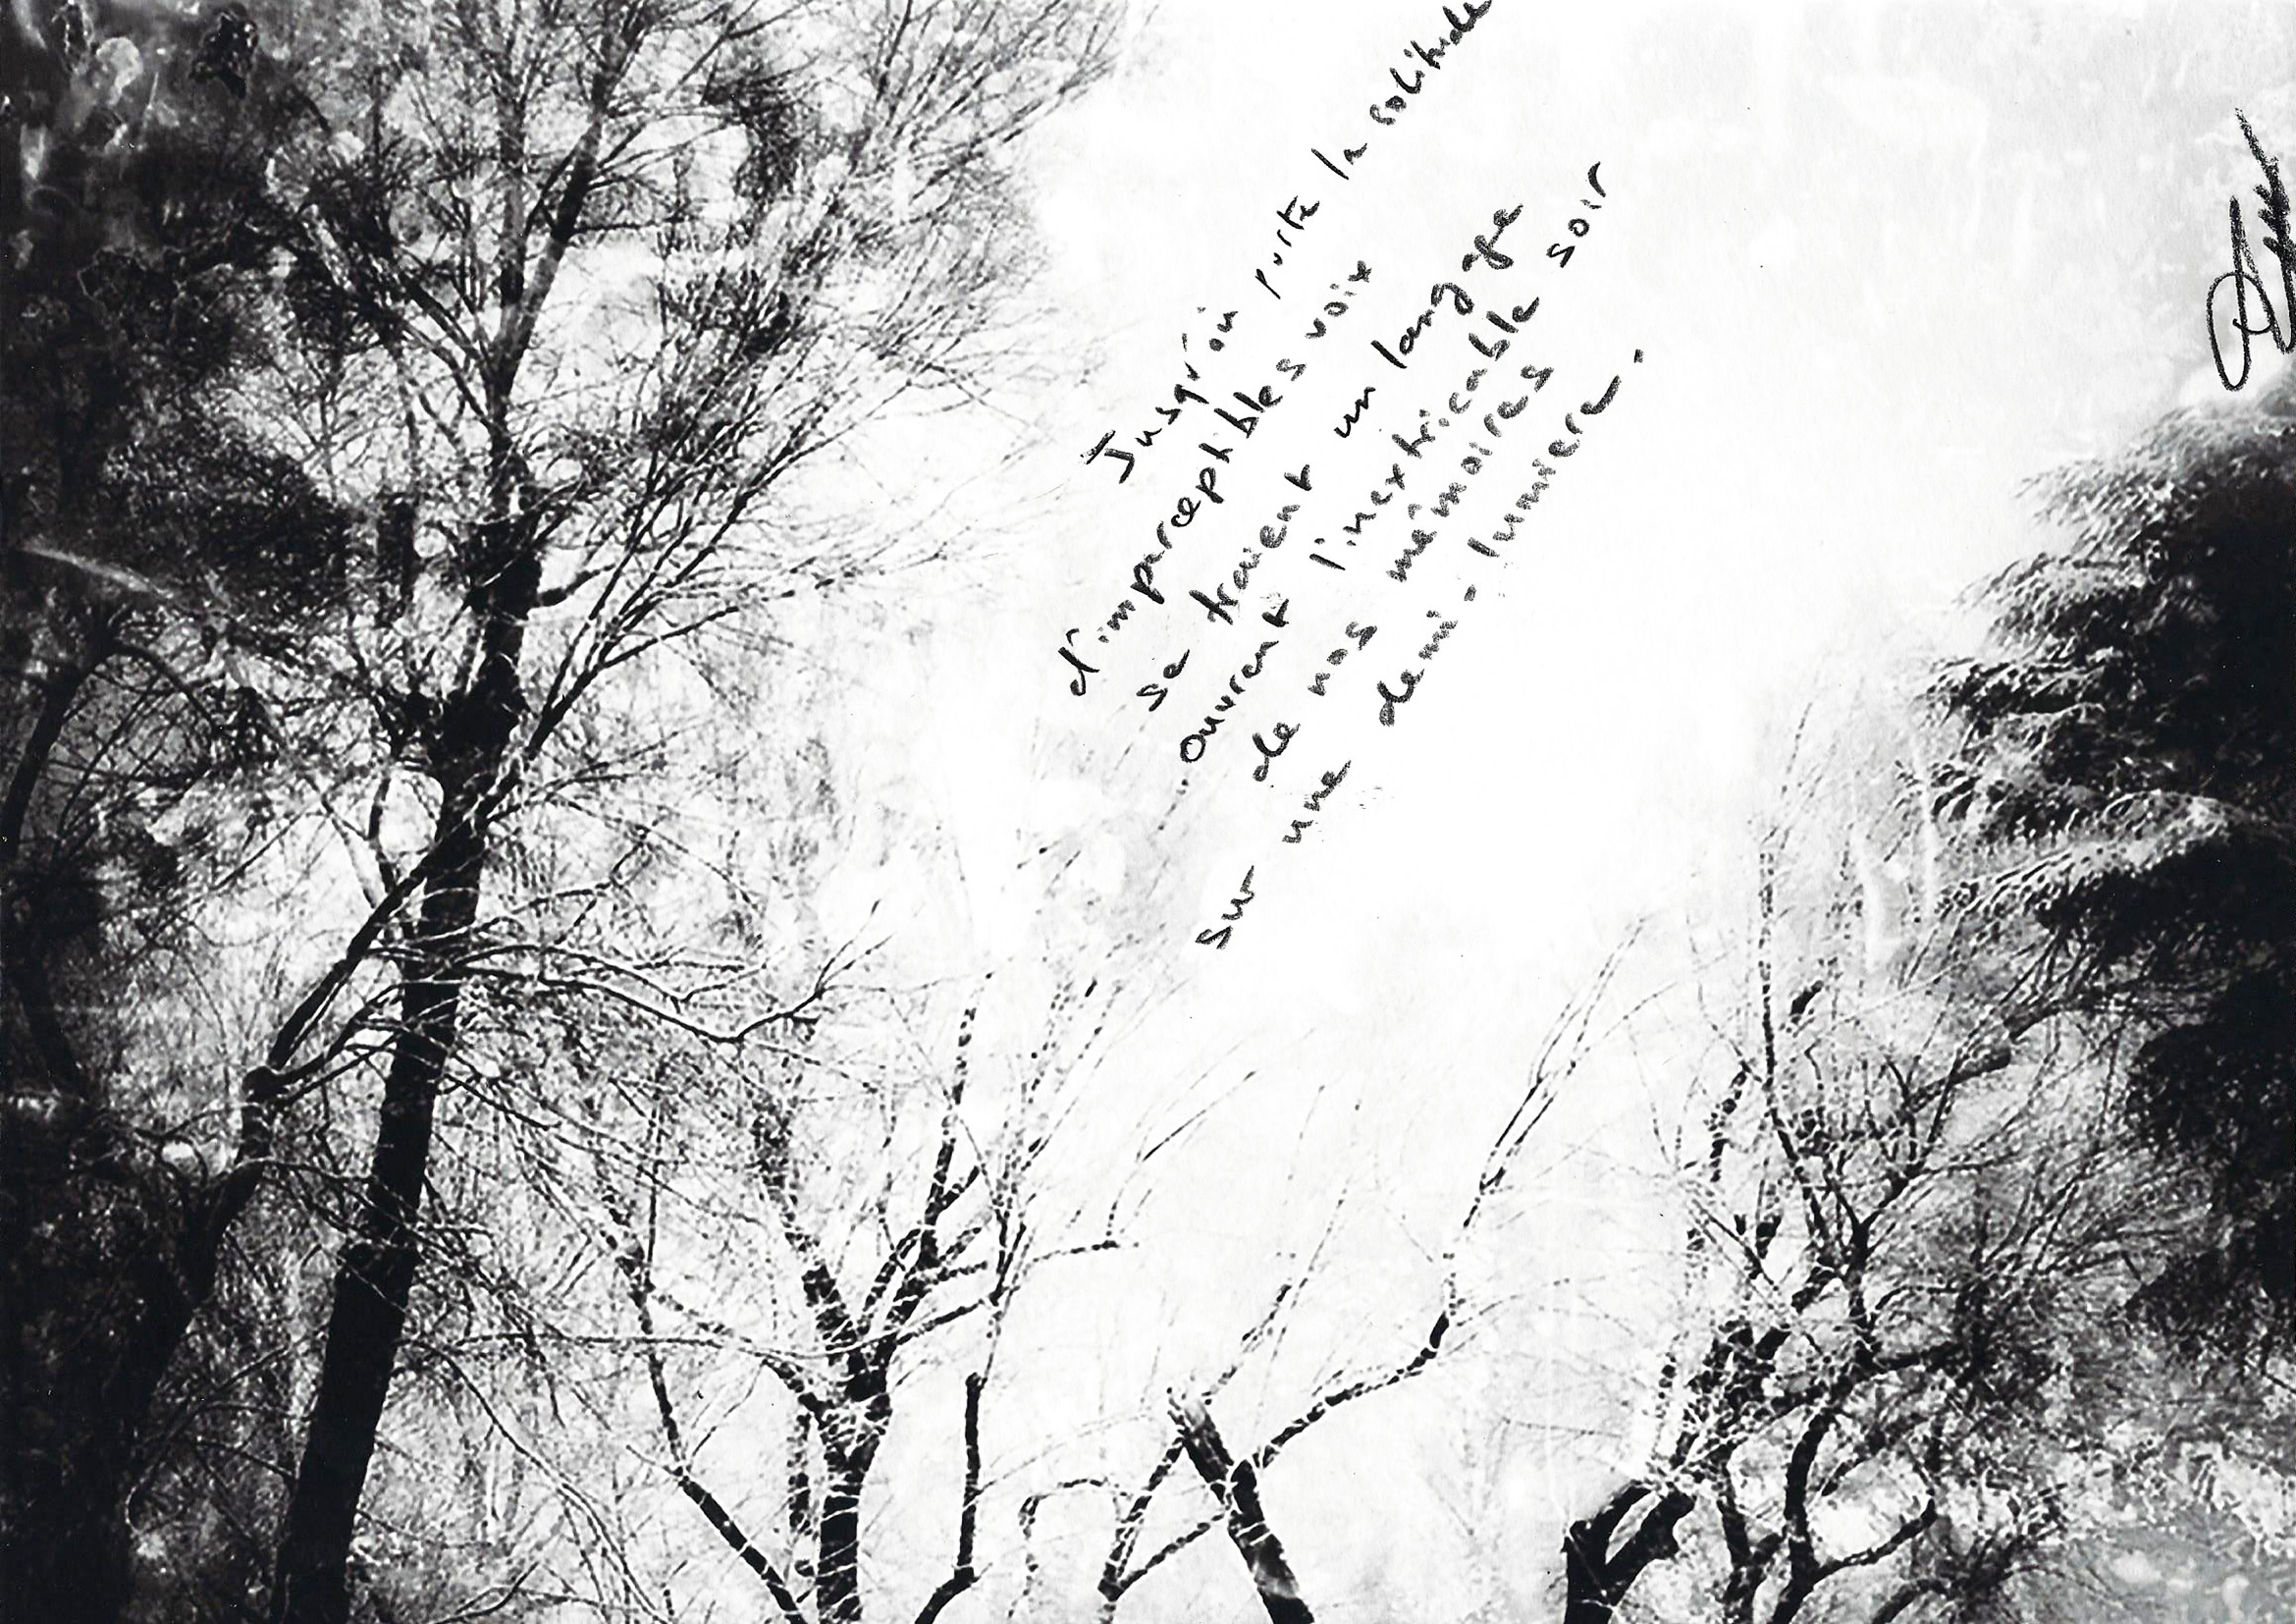 Jusqu'où porte la solitude
d'imperceptibles voix
se fraient un langage
ouvrant l'inextricable soir
de nos mémoires
sur une demi-lumière.